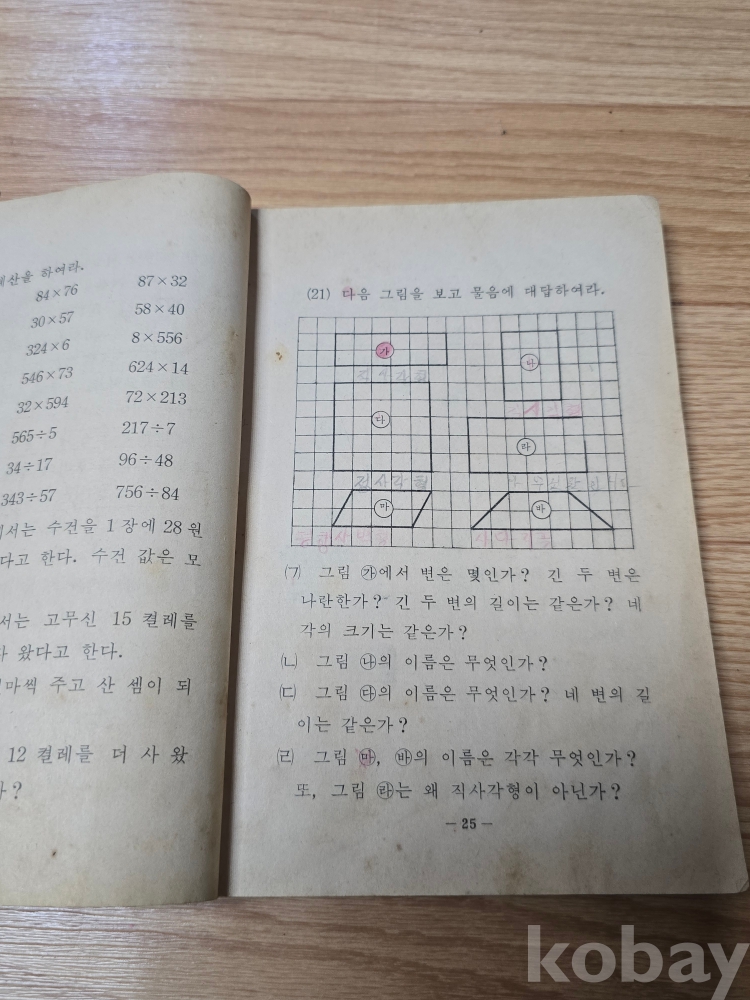 계산을 하여라.
84×76 87×32
30×57 58×40
324×6 8×556
546×73 624×14
32×594 72×213
565÷5 217÷7
34÷17 96÷48
343÷57 756÷84
에서는 수건을 1 장에 28 원
다고 한다. 수건 값은 모
서는 고무신 15 켤레를
왔다고 한다.
마씩 주고 산 셈이 되
12 켤레를 더 사 왔
가?
(21) 다음 그림을 보고 물음에 대답하여라.
㉮
㉯
직사각형
㉰
㉱
직사각형
㉲
㉳
(ㄱ) 그림 ㉮에서 변은 몇인가? 긴 두 변은
나란한가? 긴 두 변의 길이는 같은가? 네
각의 크기는 같은가?
(ㄴ) 그림 ㉯의 이름은 무엇인가?
(ㄷ) 그림 ㉰의 이름은 무엇인가? 네 변의 길
이는 같은가?
(ㄹ) 그림 ㉲, ㉳의 이름은 각각 무엇인가?
또, 그림 ㉱는 왜 직사각형이 아닌가?
— 25 —
kobay